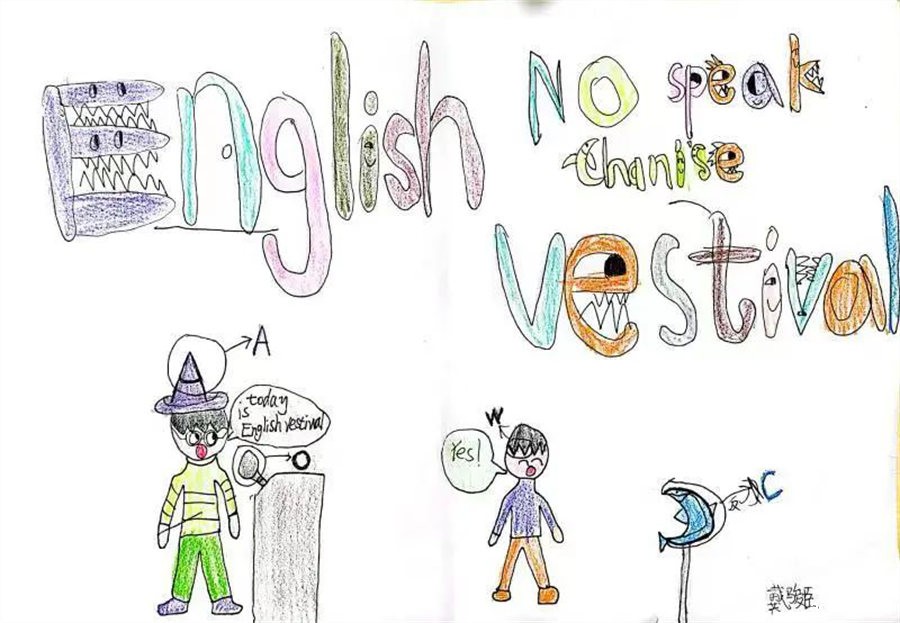 English
No speak
Chanise
Vestival
A
today
is
English vestival
O
W
Yes!
反
C